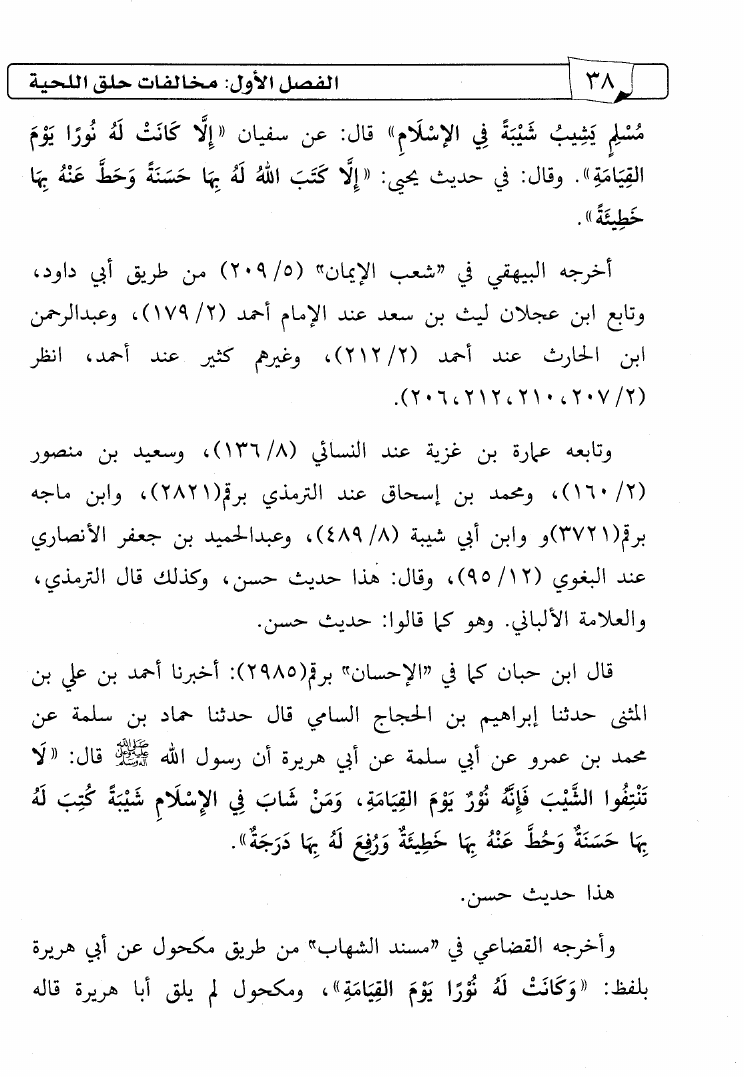 ٣٨
الفصل الأول: مخالفات حلق اللحية
مُسْلِمٍ يَشِيبُ شَيْبَةً فِي الإِسْلَامِ» قال: عن سفيان «إِلَّا كَانَتْ لَهُ نُورًا يَوْمَ
القِيَامَةِ». وقال: في حديث يحيى: «إِلَّا كَتَبَ اللهُ لَهُ بِهَا حَسَنَةً وَحَطَّ عَنْهُ بِهَا
خَطِيئَةً».
أخرجه البيهقي في "شعب الإيمان" (٥/ ٢٠٩) من طريق أبي داود،
وتابع ابن عجلان ليث بن سعد عند الإمام أحمد (٢/ ١٧٩)، وعبدالرحمن
ابن الحارث عند أحمد (٢/ ٢١٢)، وغيرهم كثير عند أحمد، انظر
(٢/ ٢٠٧، ٢١٠، ٢١٢، ٢٠٦).
وتابعه عمارة بن غزية عند النسائي (٨/ ١٣٦)، وسعيد بن منصور
(٢/ ١٦٠)، ومحمد بن إسحاق عند الترمذي برقم(٢٨٢١)، وابن ماجه
برقم(٣٧٢١)و وابن أبي شيبة (٨/ ٤٨٩)، وعبدالحميد بن جعفر الأنصاري
عند البغوي (١٢/ ٩٥)، وقال: هذا حديث حسن، وكذلك قال الترمذي،
والعلامة الألباني. وهو كما قالوا: حديث حسن.
قال ابن حبان كما في "الإحسان" برقم(٢٩٨٥): أخبرنا أحمد بن علي بن
المثنى حدثنا إبراهيم بن الحجاج السامي قال حدثنا حماد بن سلمة عن
محمد بن عمرو عن أبي سلمة عن أبي هريرة أن رسول الله ﷺ قال: «لَا
تَنْتِفُوا الشَّيْبَ فَإِنَّهُ نُوْرٌ يَوْمَ القِيَامَةِ، وَمَنْ شَابَ فِي الإِسْلَامِ شَيْبَةً كُتِبَ لَهُ
بِهَا حَسَنَةٌ وَحُطَّ عَنْهُ بِهَا خَطِيئَةٌ وَرُفِعَ لَهُ بِهَا دَرَجَةٌ».
هذا حديث حسن.
وأخرجه القضاعي في "مسند الشهاب" من طريق مكحول عن أبي هريرة
بلفظ: «وَكَانَتْ لَهُ نُوْرًا يَوْمَ القِيَامَةِ»، ومكحول لم يلق أبا هريرة قاله